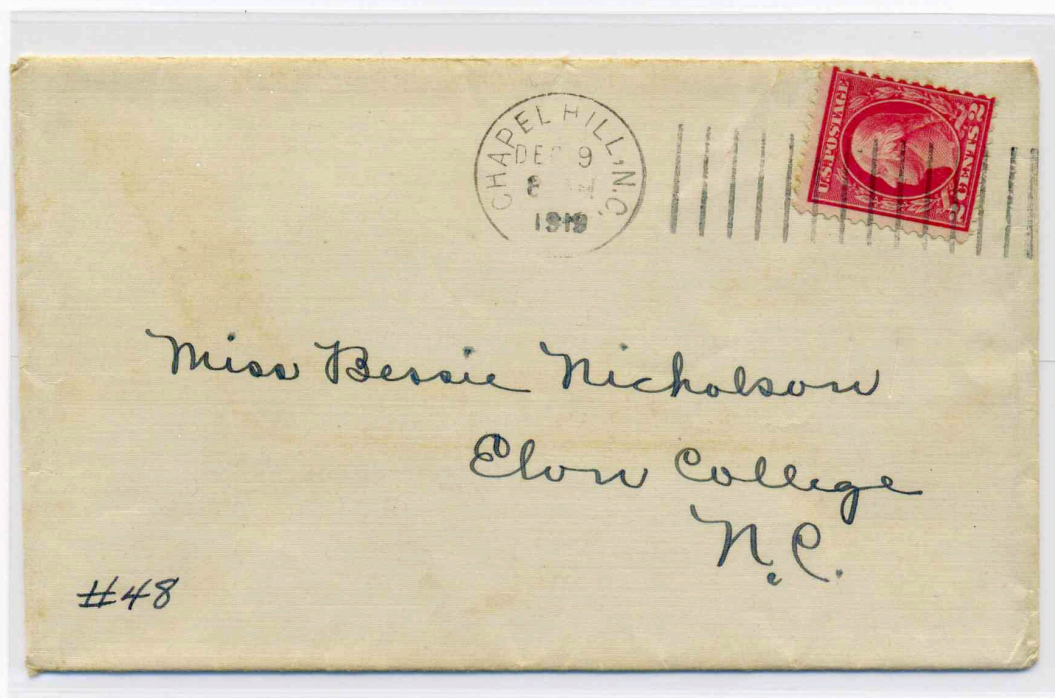 CHAPEL HILL, N.C.
DEC 9
8 AM
1919
U.S. POSTAGE
2 CENTS 2
Miss Bessie Nicholson
Elon College
N.C.
#48